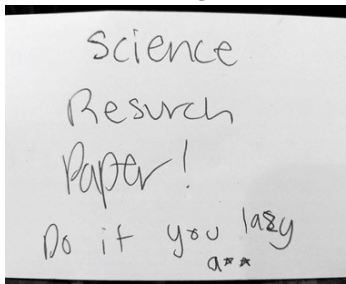 Science
Resurch
Paper!
Do it you lazy
a**